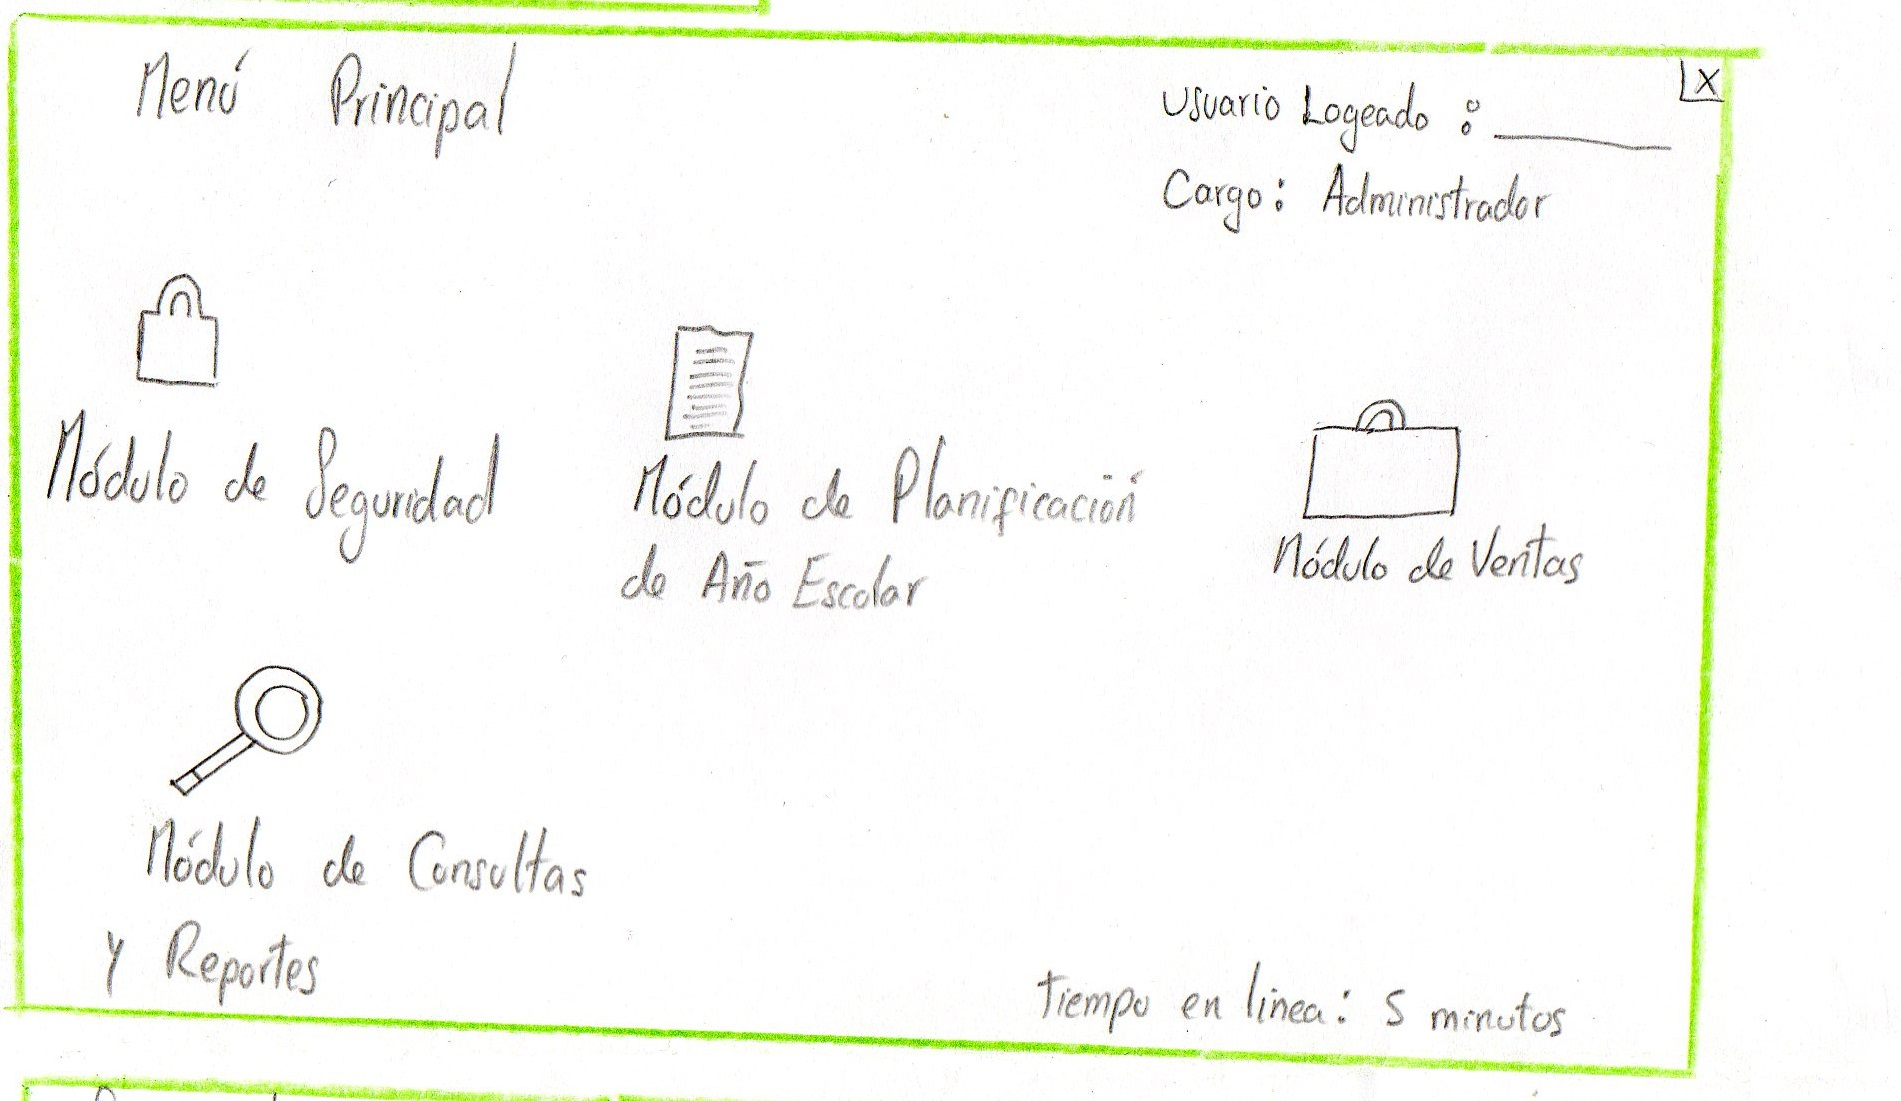 Menú Principal
X
Usuario Logeado :
Cargo: Administrador
Módulo de Seguridad
Módulo de Planificación
de Año Escolar
Módulo de Ventas
Módulo de Consultas
y Reportes
Tiempo en línea: 5 minutos